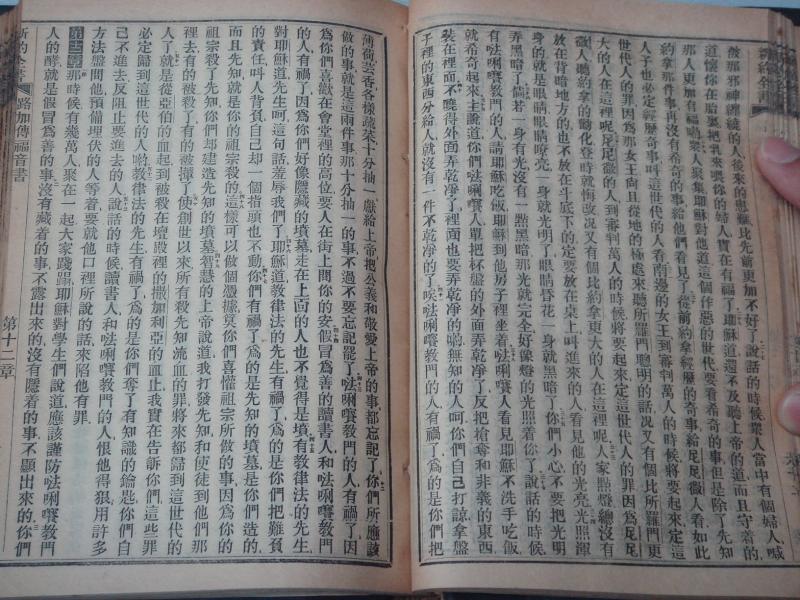 做那邪神纏繞的人後來的患難比先前更加不好了說話的時候眾人當中有個婦人喊
道懷你在胎裏把乳來喂你的婦人實在有福了耶穌道還不及聽上帝的道而且守着的
那人更加有福喲眾人聚集耶穌對他道這個作惡的世代要看希奇的事但是除了先知
約拿那件事再沒有希奇的事給他們看見了從前約拿經歷的奇事給尼尼微人看如此
人子也必定經歷奇事叫這世代的人看南邊的女王到審判萬人的時候將要起來定這
世代人的罪因爲那女王向且從地的極處來聽所羅門聰明的話況又有個比所羅門更
大的人在這裡呢尼尼微的人到審判萬人的時候將要起來定這世代人的罪因爲尼尼
微人聽約拿的勸化登時就悔改況又有個比約拿更大的人在這裡呢人家點燈總沒有
放在背暗地方的也不放在斗底下的定要放在桌上叫進來的人看見他的光亮光照渾
身的就是眼睛眼睛嘹亮一身就光明了眼睛昏花一身就黑暗了你們小心不要把光明
弄黑暗了倘若一身有光沒有一點黑暗那光就完全好像燈的光照着你了說話的時候
有唎教門的人請耶穌吃飯耶穌到他房子裡坐着唎人看見耶穌不洗手吃飯
就希奇起來主說道你們唎人單把杯盤的外面弄乾凈了反把搶奪和非義的東西
裝在裡面不曉得外面弄乾凈了裡面也要弄乾凈的喲無知的人呵你們自己打諒拿盤
子裡的東西分給人就沒有一件不乾凈的了唉唎教門的人有禍了爲的是你們把
薄荷芸香各樣蔬菜十分抽一獻給上帝把公義和敬愛上帝的事都忘記了你們所應該
做的事就是這兩件事那十分抽一的事不過不要忘記罷了唎教門的人有禍了因
爲你們喜歡在會堂裡的高位要人在街上問你的安假冒爲善的讀書人和唎教門
的人有禍了因爲你們好像隱藏的墳墓走在上面的人也不覺得是墳有教律法的先生
對耶穌道先生呵這句話羞辱我們了耶穌道教律法的先生有禍了爲的是你們把難負
的責任叫人背負自己却一個指頭也不動你們有禍了爲的是先知的墳墓是你們造的
而且先知就是你的祖宗殺的這樣可以做個憑據莫你們喜懽祖宗所做的事因爲你的
祖宗殺了先知你們却建造先知的墳墓智慧的上帝說道我打發先知和使徒到他們那
裡去有的被殺了有的被攆了使創世以來所有殺先知流血的罪將來都歸到這世代的
人了就是從亞伯的血起到被殺在壇殿裡的撒加利亞的血止我實在告訴你們這些罪
必定歸到這世代的人喲教律法的先生有禍了爲的是你們奪了有知識的鑰匙你們自
己不進去反阻止要進去的人說話的時候讀書人和唎教門的人恨他得狠用許多
方法盤問他預備埋伏的人等着要就他口裡所說的話來陷他有罪
第十二章那時候有幾萬人聚在一起大家踐蹋耶穌對學生們說道應該謹防唎教門
人的酵就是假冒爲善的事沒有藏着的事不露出來的沒有隱着的事不顯出來的你們
新約全書 路加傳福音書 第十二章